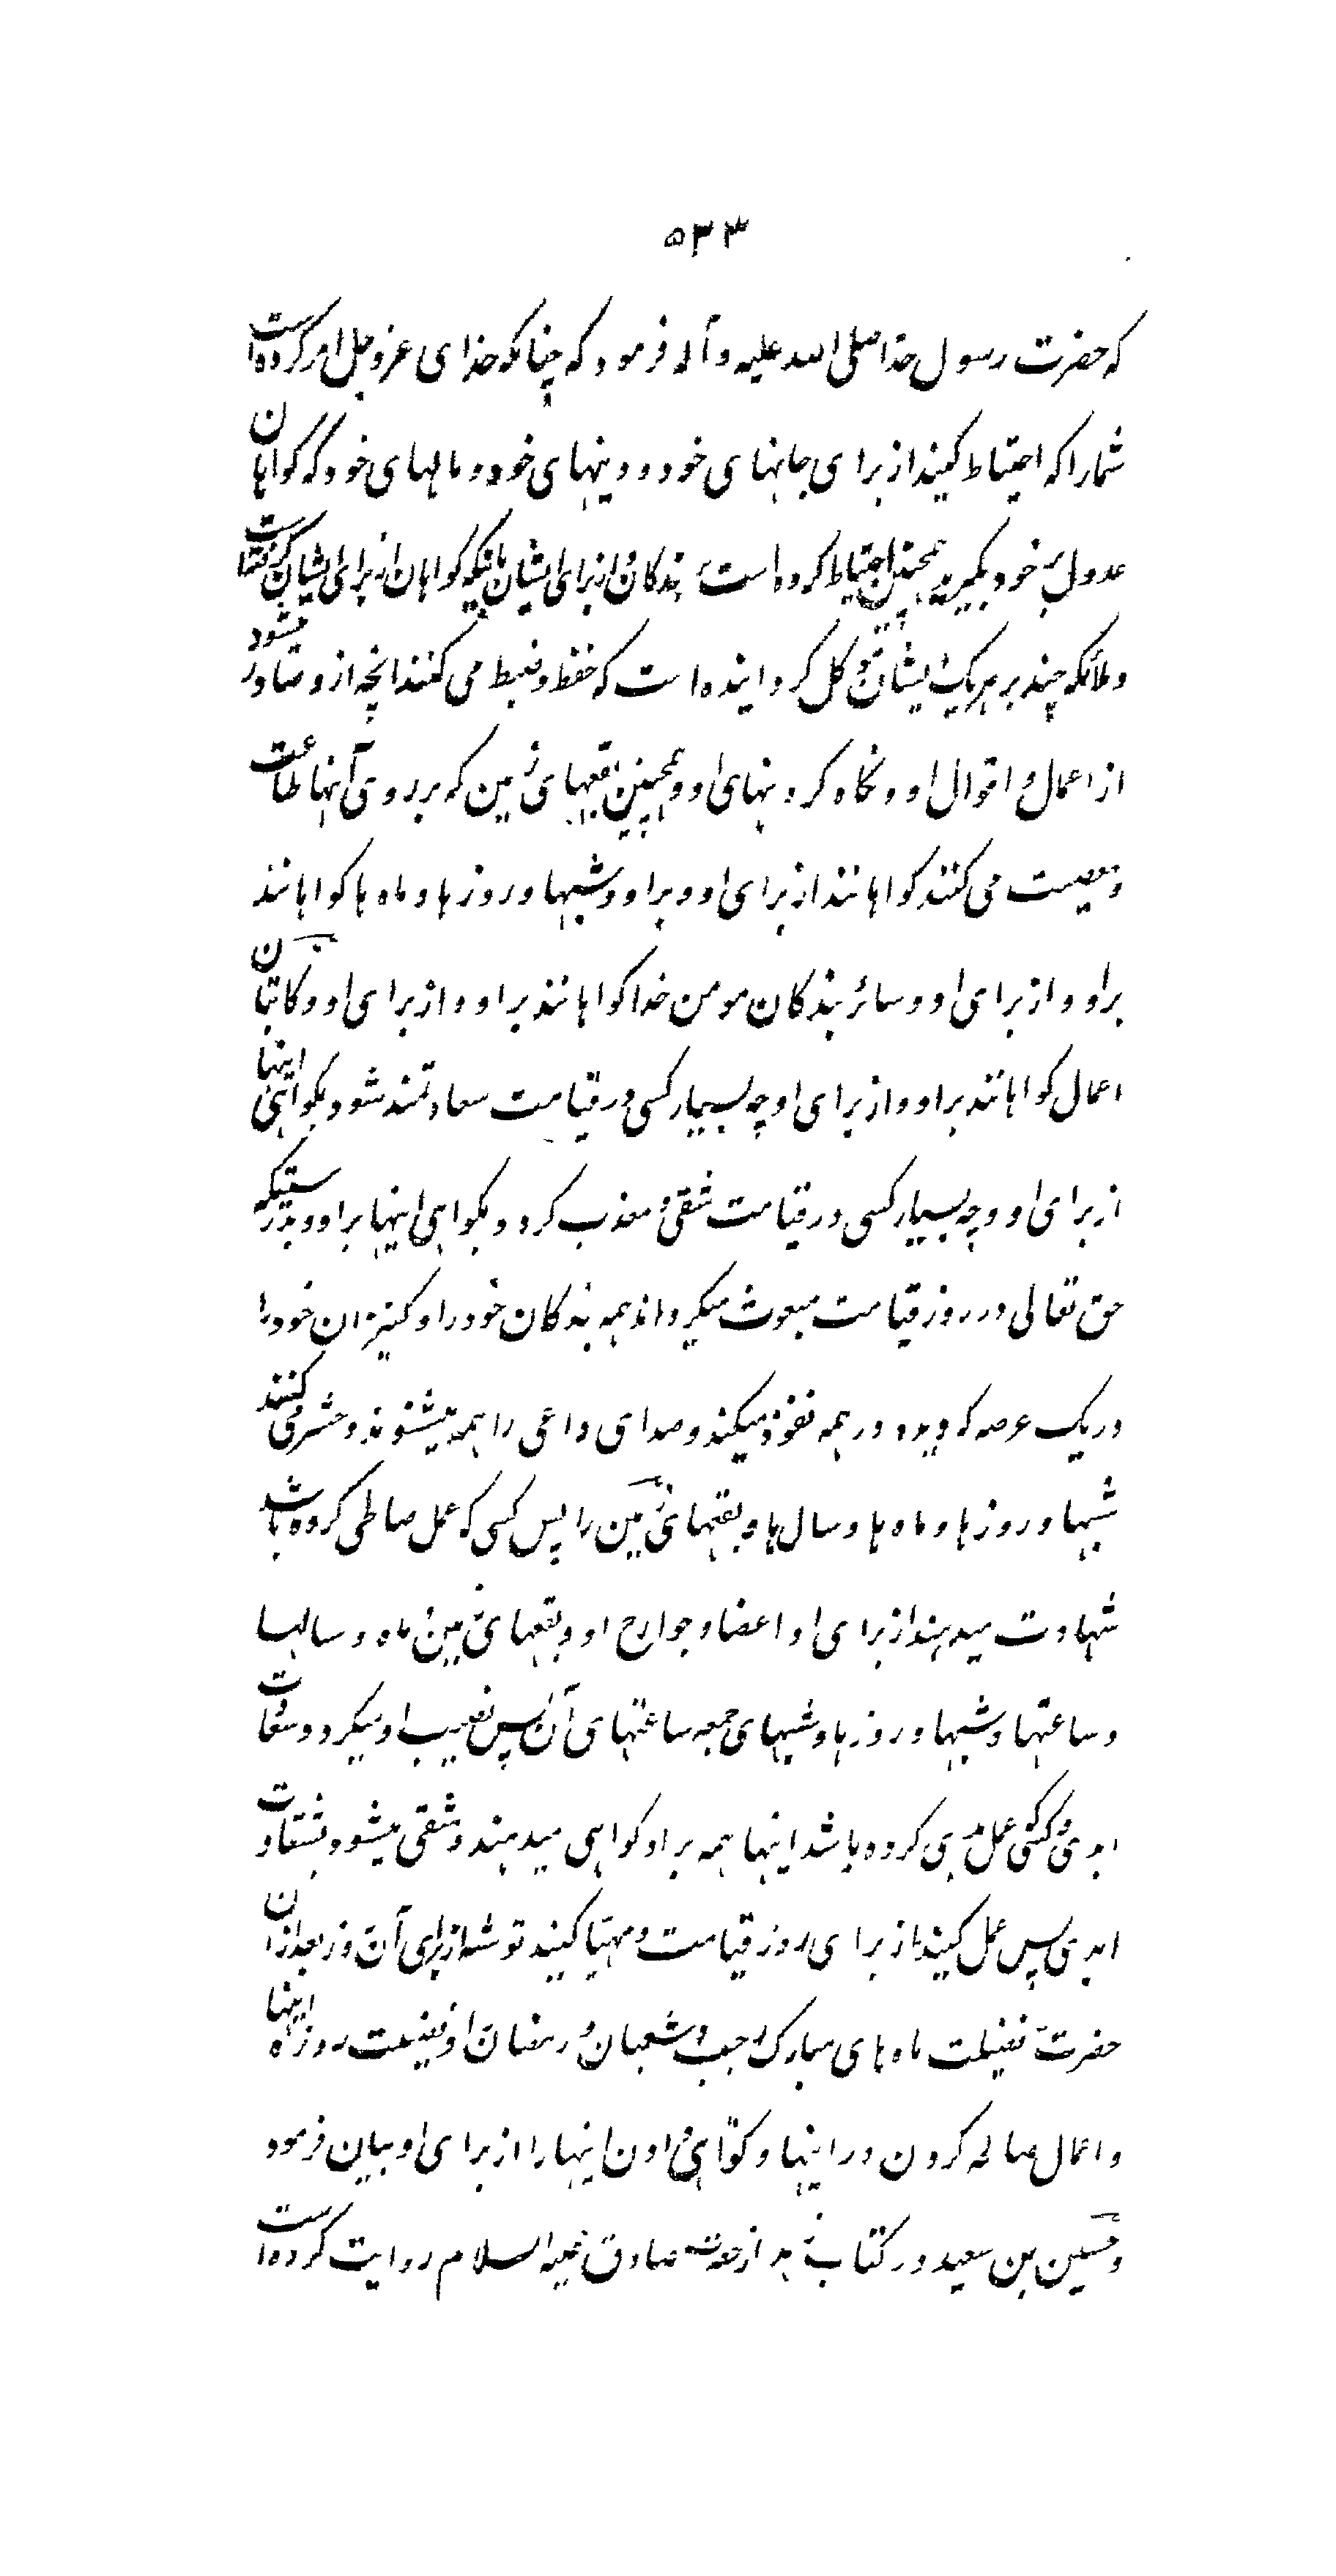 ۵۳۳
که حضرت رسول خدا صلی الله علیه و آله فرمود که چنانکه خدای عز و جل امر کرده است
شما را که احتیاط کنید از برای جانهای خود و دینهای خود و مالهای خود که کواهان
عدول بر خود بکیرید همچنین احتیاط کرده است بر بندکان و از برای ایشان باینکه کواهان از برای ایشان کرفته است
و ملائکه چند بر هر یک ایشان موکل کردانیده است که حفظ و ضبط می کنند انچه از و صادر میشود
از اعمال و اقوال او و نکاه کردنهای او و همچنین بقعهای زمین که بر روی آنها طاعت
و معصیت می کنند کواهانند از برای او و بر او و شبها و روزها و ماه ها کواهانند
بر او و از برای او و سائر بندکان مومن خدا کواهانند بر او و از برای او و کاتبان
اعمال کواهانند بر او و از برای او چه بسیار کسی در قیامت سعادتمند شود بکواهی اینها
از برای او و چه بسیار کسی در قیامت شقی و معذب کردد بکواهی اینها بر او و بدرستیکه
حق تعالی در روز قیامت مبعوث میکرداند همه بندکان خود را و کنیزان خود را
در یک عرصه که دیده در همه نفوذ میکند و صدای داعی را همه میشنوند و حشر می کنند
شبها و روزها و ماه ها و سال ها و بقعهای زمین را پس کسی که عمل صالحی کرده باشد
شهادت میدهند از برای او اعضا و جوارح او و بقعهای زمین و ماه و سالها
و ساعتها و شبها و روزها و شبهای جمعه ساعتهای آن پس نصیب او میکردد سعادت
ابدی و کسی که عمل بدی کرده باشد اینها همه بر او کواهی میدهند و شقی میشود بشقاوت
ابدی پس عمل کنید از برای روز قیامت و مهیا کنید توشه از برای آن روز بعد از ان
حضرت فضیلت ماه های مبارک رجب و شعبان و رمضان را و فضیلت روزه اینها
و اعمال صالحه کردن در اینها و کواهی دادن اینها را از برای او بیان فرمود
و حسین بن سعید در کتاب زهد از حضرت صادق علیه السلام روایت کرده است